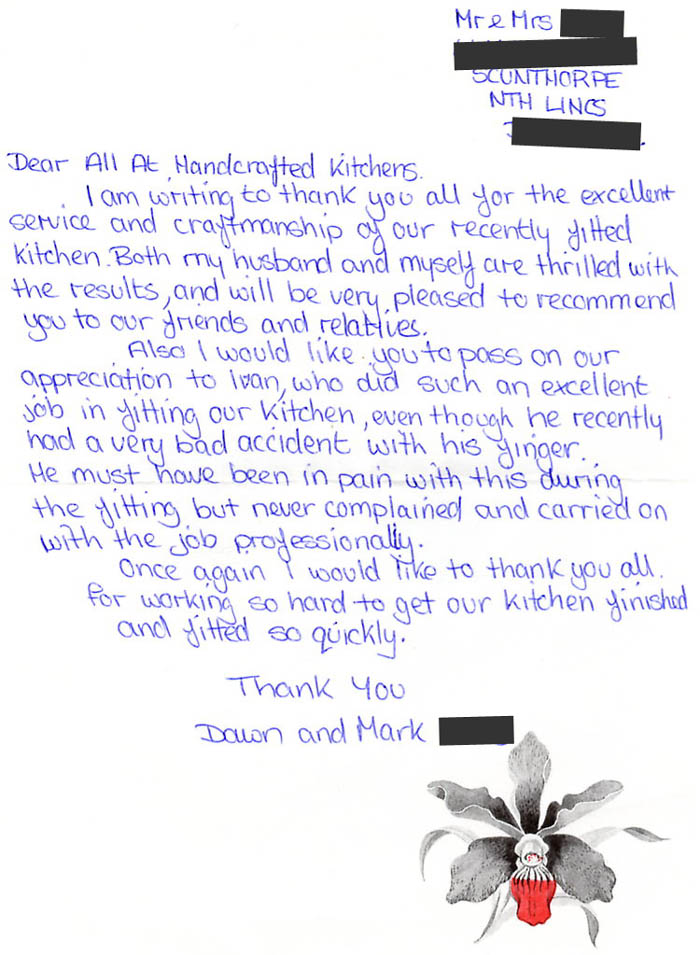 Mr & Mrs
SCUNTHORPE
NTH LINCS
Dear All At Handcrafted Kitchens.
I am writing to thank you all for the excellent
service and craftmanship of our recently fitted
kitchen. Both my husband and myself are thrilled with
the results, and will be very pleased to recommend
you to our friends and relatives.
Also I would like you to pass on our
appreciation to Ivan, who did such an excellent
job in fitting our kitchen, even though he recently
had a very bad accident with his finger.
He must have been in pain with this during
the fitting but never complained and carried on
with the job professionally.
Once again I would like to thank you all.
for working so hard to get our kitchen finished
and fitted so quickly.
Thank You
Dawn and Mark